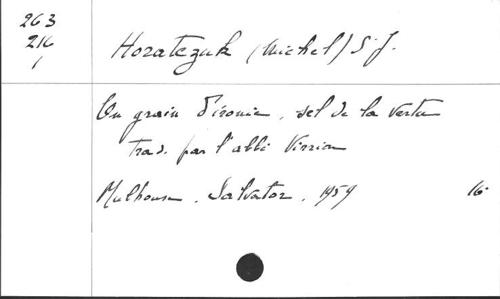 263
216
1
Horatczuk (Michel) S.J.
Un grain d'ironie, sel de la vertu
Trad. par l'abbé Virrion
Mulhouse, Salvator, 1959 16-